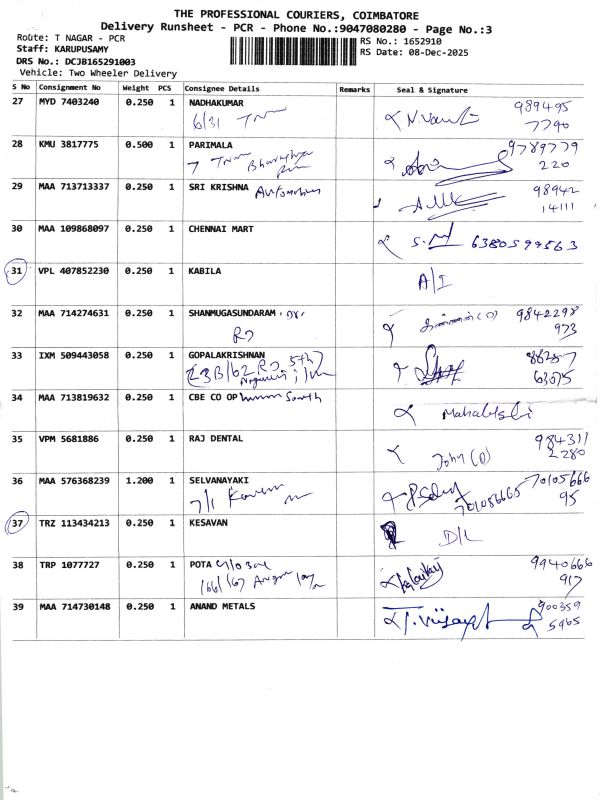 THE PROFESSIONAL COURIERS, COIMBATORE
Delivery Runsheet - PCR - Phone No.:9047080280 - Page No.:3
Route: T NAGAR - PCR
RS No.: 1652910
Staff: KARUPUSAMY
RS Date: 08-Dec-2025
DRS No.: DCJB165291003
Vehicle: Two Wheeler Delivery
S No Consignment No Weight PCS Consignee Details Remarks Seal & Signature
27 MYD 7403240 0.250 1 NADHAKUMAR 989495
6/31 7790
28 KMU 3817775 0.500 1 PARIMALA 9789779
7 220
29 MAA 713713337 0.250 1 SRI KRISHNA Automotives 98942
14111
30 MAA 109868097 0.250 1 CHENNAI MART
S.M 6380599563
31 VPL 407852230 0.250 1 KABILA A/I
32 MAA 714274631 0.250 1 SHANMUGASUNDARAM 9842298
RD 973
33 IXM 509443058 0.250 1 GOPALAKRISHNAN 88287
23B/62 RD 5th 63075
34 MAA 713819632 0.250 1 CBE CO OP South
Mahalakshmi
35 VPM 5681886 0.250 1 RAJ DENTAL 984311
John (O) 2280
36 MAA 576368239 1.200 1 SELVANAYAKI 70105666
7/1 7010566665 95
37 TRZ 113434213 0.250 1 KESAVAN D/L
38 TRP 1077727 0.250 1 POTA Global 9940666
166/167 917
39 MAA 714730148 0.250 1 ANAND METALS 900359
5965